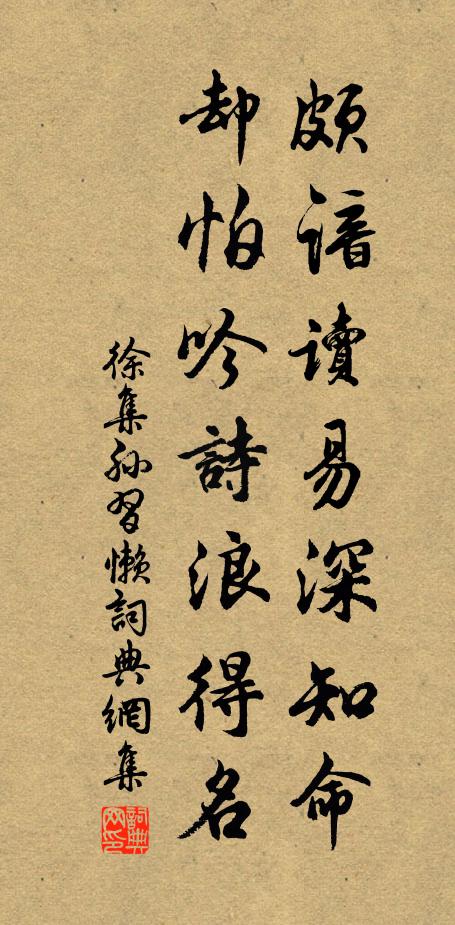 頗諳讀易深知命
却怕吟詩浪得名
徐集孫習懶詞典網集
詞典
网印